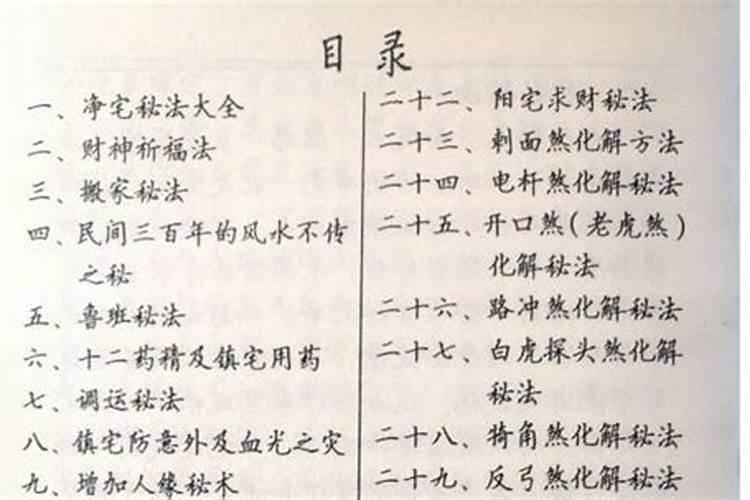 目录
一、净宅秘法大全
二、财神祈福法
三、搬家秘法
四、民间三百年的风水不传
之秘
五、鲁班秘法
六、十二药精及镇宅用药
七、调运秘法
八、镇宅防意外及血光之灾
九、增加人缘秘术
二十二、阳宅求财秘法
二十三、刺面煞化解方法
二十四、电杆煞化解秘法
二十五、开口煞(老虎煞)
化解秘法
二十六、路冲煞化解秘法
二十七、白虎探头煞化解
秘法
二十八、犄角煞化解秘法
二十九、反弓煞化解秘法